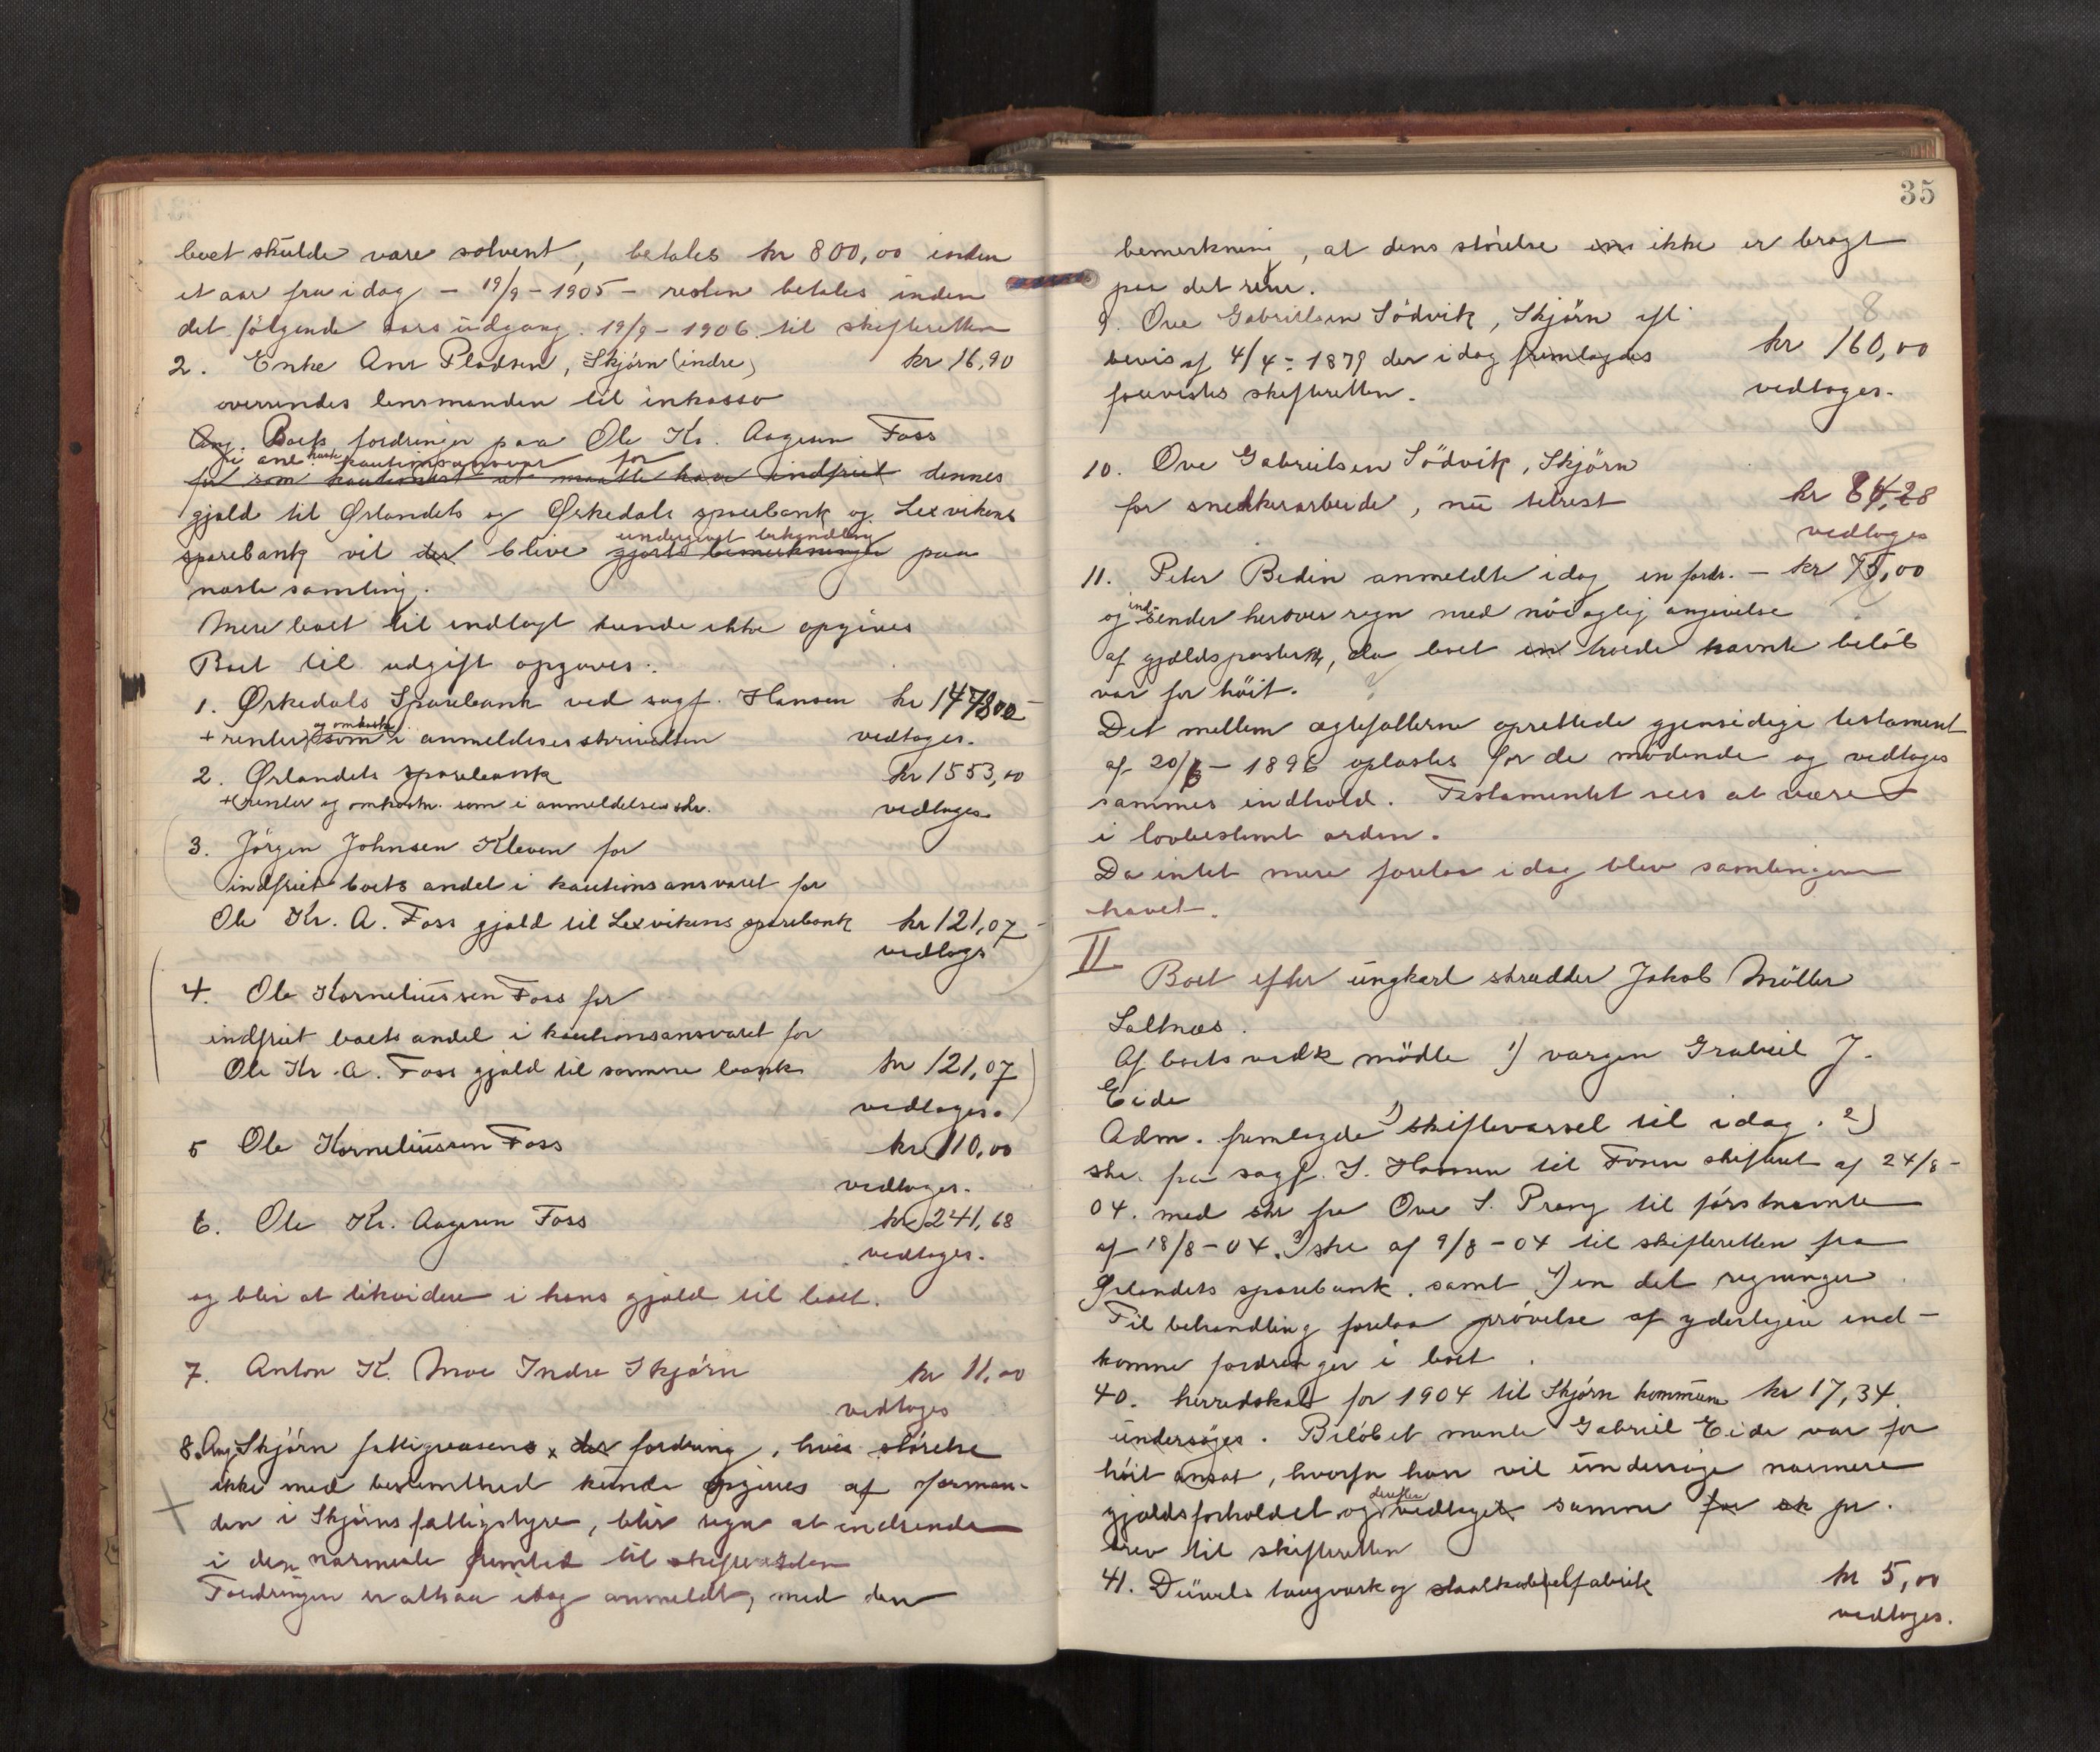 boet skulde være solvent, betales kr 800,00 inden
et aar fra i dag – 19/9 – 1905 – resten betales inden
det følgende aars udgang. 19/9 – 1906 til skifteretten
2. Enke Ane Pladsen, Skjørn (indre) kr 16,90
oversendes lensmanden til inkasso
Ang. Boets fordringer paa Ole Kr. Aagesen Foss
i anl. kautionsansvar for
for som kautionist at maatte have indfriet dennes
gjæld til Ørlandets og Ørkedals sparebank og Lexvikens
undergivet behandling
sparebank vil der blive gjort bemerkninger paa
næste samling.
Mere boet til indtægt kunde ikke opgives
Boet til udgift opgaves:
1. Ørkedals Sparebank ved sagf. Hansen kr 147800
og omkostn.
+ renter som i anmeldelsesskrivelsen vedtages.
2. Ørlandets sparebank kr 1553,00
+ renter og omkostn. som i anmeldelses skr. vedtages.
3. Jørgen Johnsen Kleven for
indfriet boets andel i kautionsansvaret for
Ole Kr. A. Foss gjæld til Lexvikens sparebank kr 121,07
vedtages
4. Ole Korneliussen Foss for
indfriet boets andel i kautionsansvaret for
Ole Kr. A. Foss gjæld til samme bank kr 121,07
vedtages.
5 Ole Korneliussen Foss kr 110,00
vedtages.
6. Ole Kr. Aagesen Foss kr 241,68
vedtages.
og blir at likvidere i hans gjæld til boet.
7. Anton K. Moe Indre Skjørn kr 11,00
vedtages
8. Ang Skjørn fattigvæsens x der fordring, hvis størelse
ikke med bestemthed kunde opgives af forman-
den i Skjørns fattigstyre, blir regn at indsende
i den nærmeste fremtid til skifteretten
Fordringen er altsaa idag anmeldt, med den
35
bemerkning, at dens størelse end ikke er bragt
paa det rene.
9. Ove Gabrielsen Sødvik, Skjørn eft.
bevis af 4/4 – 1879 der i dag fremlagdes kr 160,00
forevistes skifteretten. vedtages.
10. Ove Gabrielsen Sødvik, Skjørn
for snedkerarbeide, nu tilrest kr 84,28
vedtages
11. Peter Bedin anmeldte idag en fordr. – kr 75,00
ind-
og sender herover regn med nøiagtig angivelse
af gjældsposterne, da boet troede nævnte beløb
var for høit.
Det mellem ægtefællerne oprettede gjensidige testament
af 20/6 – 1896 oplæstes for de mødende og vedtoges
sammes indhold. Testamentet sees at være
i lovbestemt orden.
Da intet mere forelaa i dag blev samlingen
hævet.
II
Boet efter ungkarl skrædder Jakob Møller
Saltnes.
Af boets vedk mødte 1) vergen Grabriel J.
Eide
Adm. fremlagde 1) skiftevarsel til idag. 2)
skr. fra sagf. S. Hansen til Fosen skifteret af 24/8 –
04. med skr fra Ove S. Prang til førstnævnte
af 18/8 – 04. 3) skr af 9/8 – 04 til skifteretten fra
Ørlandets sparebank. samt 4) en del regninger
Til behandling forelaa prøvelse af yderligere ind-
komne fordringer i boet.
40. herredskat for 1904 til Skjørn kommune kr 17,34.
undersøges. Beløbet mente Gabriel Eide var for
høit ansat, hvorfor han vil undersøge nærmere
derefter
gjældsforholdet og vedtaget samme for sk pr.
brev til skifteretten
41. Düvels taugverk og staalkabelfabrik kr 5,00
vedtages.